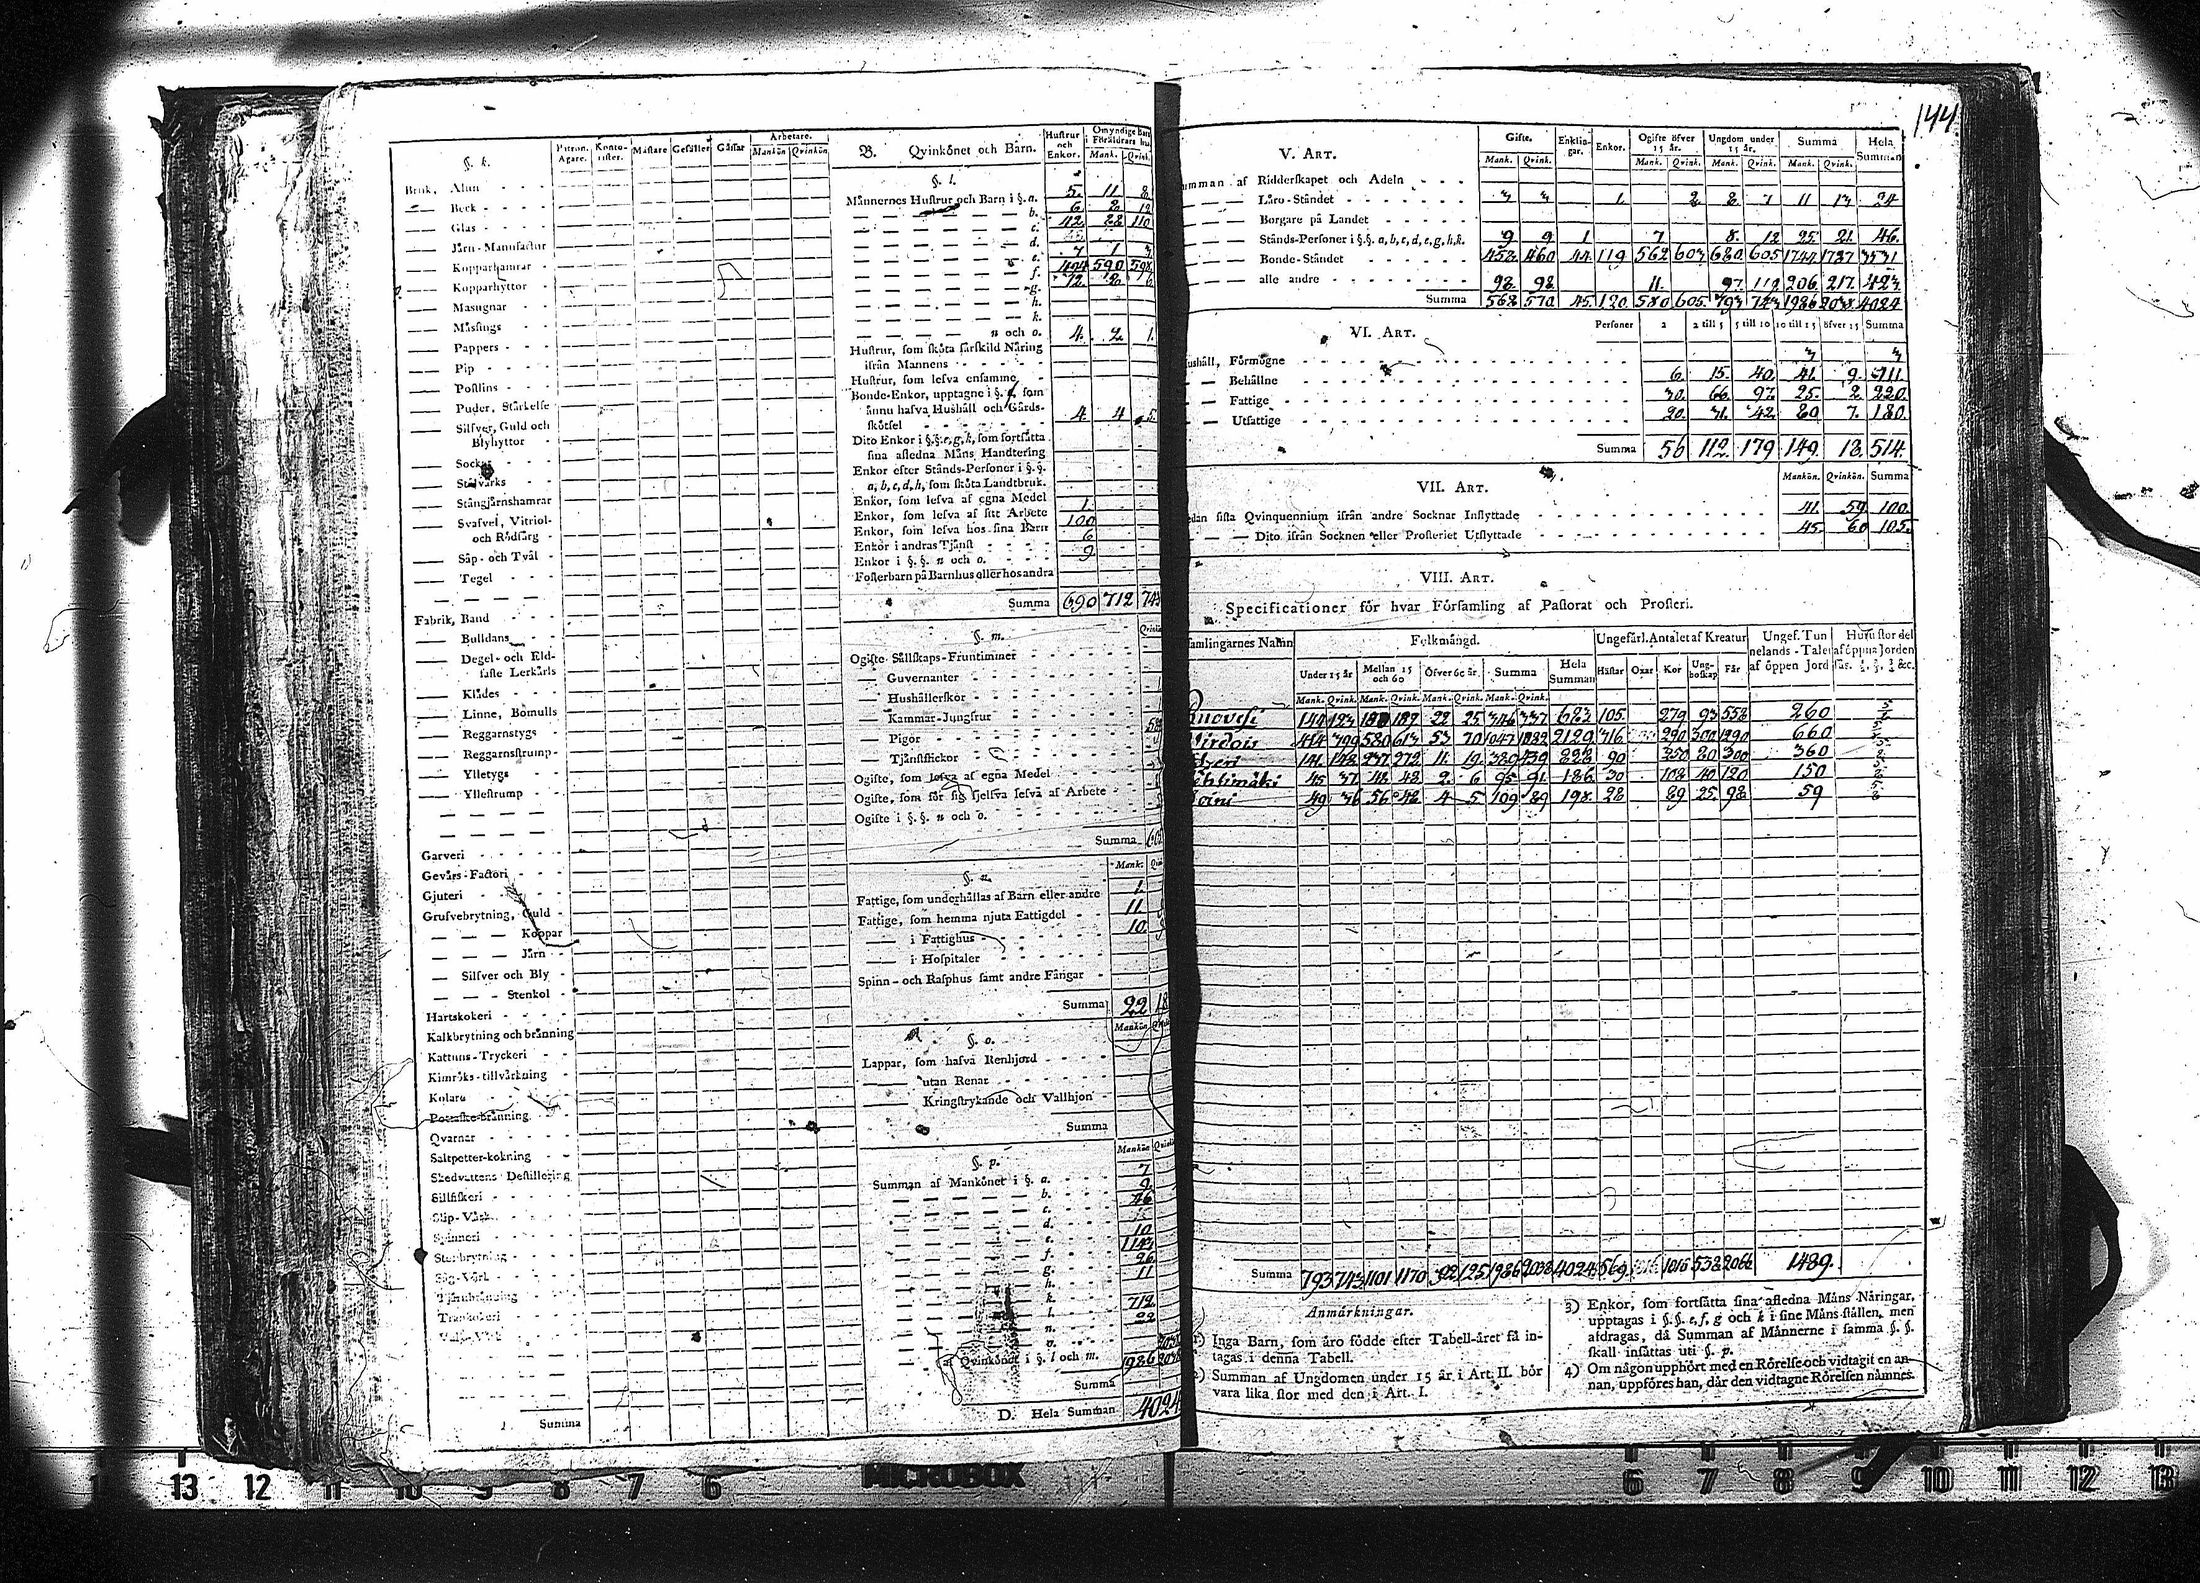 144
§. k.
Patron. Agare. Konto-rister. Måstare Gesäller Gåssar Arbetare. Mankön Qvinkön.
Bruk, Alun
— Beck
— Glas
— Jårn-Manufactur
— Kopparhamrar
— Kopparhyttor
— Masugnar
— Måssings
— Pappers
— Pip
— Postlins
— Puder, Stårkelse
— Silfver, Guld och
Blyhyttor
— Socker
— Stålvårks
— Stångjårnshamrar
— Svafvel, Vitriol-
och Rödfårg
— Såp- och Tvål
— Tegel
Fabrik, Band
— Bulldans
— Degel- och Eld-
faste Lerkårls
— Klådes
— Linne, Bomulls
— Reggarnstygs
— Reggarnsstrump-
— Ylletygs
— Yllestrump
Garveri
Gevårs-Factori
Gjuteri
Grufvebrytning, Guld
— — — Koppar
— — — Jårn
— Silfver och Bly
— — — Stenkol
Hartskokeri
Kalkbrytning och brånning
Kattuns-Tryckeri
Kimröks-tillvårkning
Kolare
Pottaske-brånning
Qvarnar
Saltpetter-kokning
Skedvattens Destillering
Sillfiskeri
Slip-Vårk
Spinneri
Stenbrytning
Såg-Vårk
Tjårubrånning
Trankokeri
Summa
B. Qvinkönet och Barn.
Hustrur och Enkor. Omyndige Barn i Föråldrars hus. Mank. Qvink.
§. l.
Månnernes Hustrur och Barn i §. a. 5. 11. 8.
b. 6. 2. 12
c. 42. 28 110
d.
e. 7 1 3
f. 494 590 598
g. 12. 2 6
h.
k.
n och o. 4. 2 1.
Hustrur, som sköta sårskild Nåring
ifrån Mannens
Hustrur, som lefva ensamme
Bonde-Enkor, upptagne i §. f. som
ånnu hafva Hushåll och Gårds-
skötsel 4. 4 5
Dito Enkor i §.§. e, g, k, som fortsåtta
sina afledna Måns Handtering
Enkor efter Stånds-Personer i §.§.
a, b, c, d, h, som sköta Landtbruk.
Enkor, som lefva af egna Medel 1.
Enkor, som lefva af sitt Arbete 100
Enkor, som lefva hos sina Barn 6
Enkor i andras Tjånst 9
Enkor i §. §. n och o.
Fosterbarn på Barnhus eller hos andra
Summa 690 712 743
§. m.
Ogifte Sållskaps-Fruntimmer
— Guvernanter
— Hushållerskor
— Kammar-Jungfrur
— Pigor
— Tjånstflickor
Ogifte, som lefva af egna Medel
Ogifte, som för sig sjelfva lefva af Arbete
Ogifte i §. §. n och o.
Summa
Mank.
§. n.
Fattige, som underhållas af Barn eller andre 1.
Fattige, som hemma njuta Fattigdel 11
— i Fattighus 10.
— i Hospitaler
Spinn- och Rasphus samt andre Fångar
Summa 22 18
Mankön
§. o.
Lappar, som hafva Renhjord
— utan Renar
— Kringstrykande och Vallhjon
Summa
Mankön
§. p.
Summan af Mankönet i §. a. 7
b. 9
c. 46
d.
e. 10
f. 1143
g. 26
h. 11
k.
l. 712
n. 22
o.
Qvinkönet i §. l och m. 2038
Summa 1986 2038
D. Hela Summan 4024
V. ART.
Gifte. Mank. Qvink. Enklin-gar. Enkor. Ogifte öfver 15 år. Mank. Qvink. Ungdom under 15 år. Mank. Qvink. Summa Mank. Qvink. Hela Summan
Summan af Ridderskapet och Adeln
— — — Låro-Ståndet 3 3 1. 2 8 7 11 13 24
— — — Borgare på Landet
— — — Stånds-Personer i §.§. a, b, c, d, e, g, h, k. 9 9 1 7 8. 12 25. 21. 46.
— — — Bonde-Ståndet 458 460 44 119 562 603 680 605 1744 1787 3531
— — — alle andre 98. 98. 11. 97. 119 206. 217. 423
Summa 568 570. 45. 120. 580 605. 793 743 1986 2038 4024
VI. ART.
Personer 2 2 till 5 5 till 10 10 till 15 öfver 15 Summa
Hushåll, Förmögne 3 3
— — Behållne 6. 15. 40. 41. 9. 111.
— — Fattige 30. 66. 97. 25. 2. 220.
— — Utfattige 20. 31. 42. 80 7. 180.
Summa 56 112. 179 149. 18. 514.
VII. ART.
Mankön. Qvinkön. Summa
Sedan sista Qvinquennium ifrån andre Socknar Inflyttade 41. 59. 100.
— — Dito ifrån Socknen eller Prosteriet Utflyttade 45. 60 105.
VIII. ART.
Specificationer för hvar Församling af Pastorat och Prosteri.
Församlingarnes Namn Folkmångd. Ungefårl. Antalet af Kreatur Ungef. Tunnelands-Talet af öppen Jord Huru stor del af öppna Jorden sås. ½, ⅓, ¼ &c.
Under 15 år Mellan 15 och 60 Öfver 60 år Summa Hela Summan Håstar Oxar Kor Ung-boskap Får
Mank. Qvink. Mank. Qvink. Mank. Qvink. Mank. Qvink.
Ruovesi 144 123 180 189 22 25 346 337 683 105. 279 93 558 260
Virdois 414 399 580 613 53 70 1047 1082 2129 316 290 300 990 660
141. 148 237 272 11. 19. 389 439 828 90 250 80 300 360
45 37 48 48 2. 6 95 91. 186. 30 108 40 120 150
49 36 56 48 4 5 109 89 198. 28 89 25. 98 59
Summa 793 743 1101 1170 92 125 1986 2038 4024 569. 1016 538 2066 1489.
Anmårkningar.
1) Inga Barn, som åro födde efter Tabell-året få in-
tagas i denna Tabell.
2) Summan af Ungdomen under 15 år i Art. II. bör
vara lika stor med den i Art. I.
3) Enkor, som fortsåtta sina afledna Måns Nåringar,
upptagas i §.§. e, f, g och k i sine Måns stållen, men
afdragas, då Summan af Månnerne i samma §. §.
skall insåttas uti §. p.
4) Om någon upphört med en Rörelse och vidtagit en an-
nan, uppföres han, där den vidtagne Rörelsen nåmnes.
13 12 11 10 9 8 7 6 MICROBOX 6 7 8 9 10 11 12 13